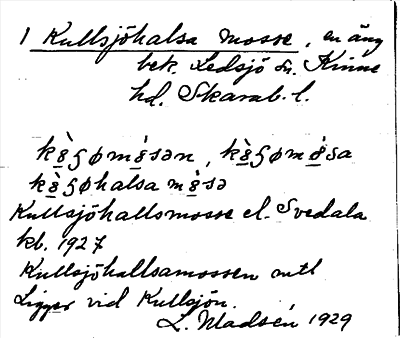 1 Kullsjöhalsa mosse, en äng
bek. Ledsjö sn. Kinne
hd. Skarab. l.
kùl̀ʂømòsən, kùl̀ʂømòsa
kùl̀ʂøhalsa mòsə
Kullsjöhallsmosse el. Svedala
kb. 1927
Kullsjöhallsamossen mtl
Ligger vid Kullsjön.
L. Madsén 1929